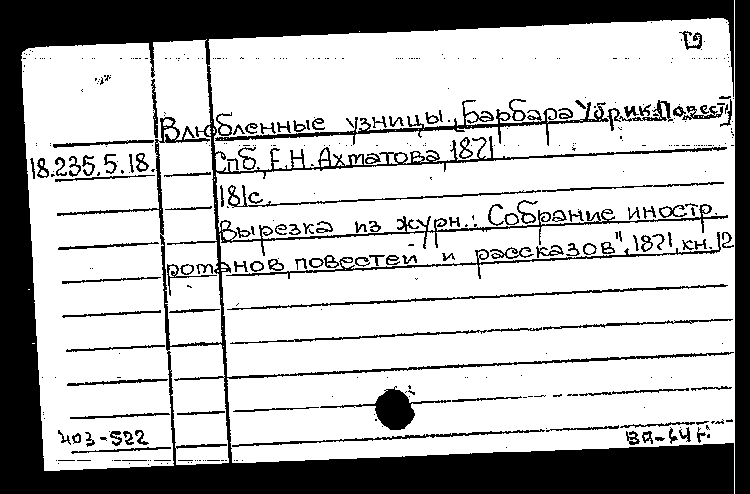 Влюбленные узницы. [Барбара Убрик. Повесть]
18.235.5.18.
Спб., Е.Н. Ахматова, 1871.
181с.
Вырезка из журн.: „Собрание иностр.
романов, повестей и рассказов", 1871, кн. 12
403-522